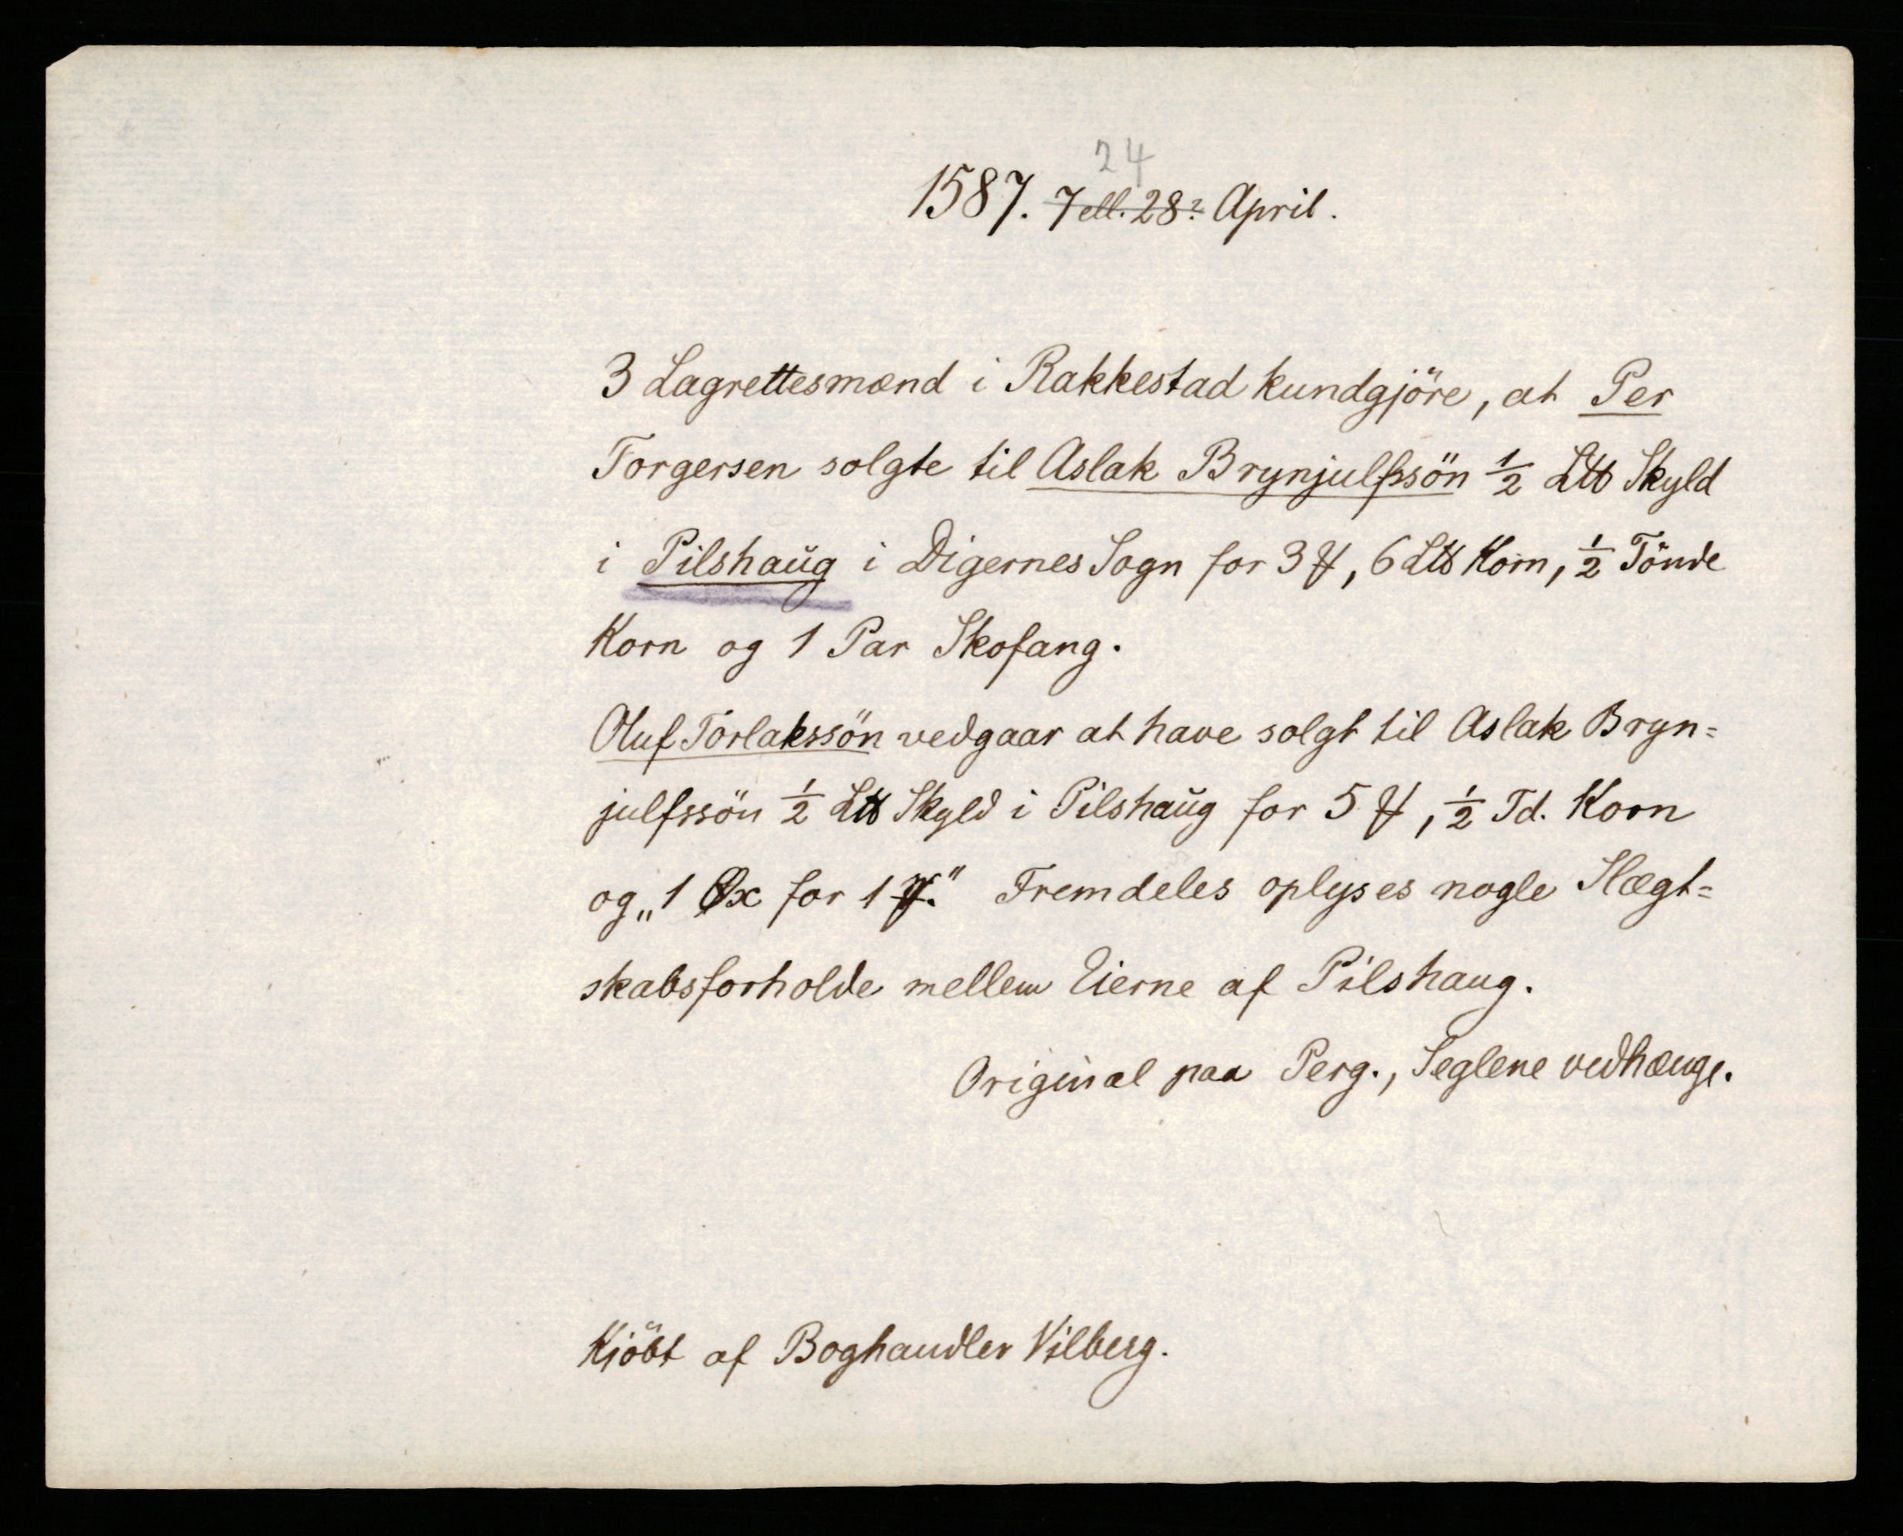 24
1587. 7 ell. 28? April.
3 Lagrettesmænd i Rakkestad kundgjöre, at Per
Torgersen solgte til Aslak Brynjulfssön ½ L℔ Skyld
i Pilshaŭg i Digernes Sogn for 3 , 6 L℔ Korn, ½ Tönde
Korn og 1 Par Skofang.
Oluf Torlakssön vedgaar at have solgt til Aslak Bryn=
julfssön ½ L℔ Skyld i Pilshaŭg for 5 , ½ Td. Korn
og „1 Øx for 1 ." Fremdeles oplyses nogle Slægt=
skabsforholde mellem Eierne af Pilshaug.
Original paa Perg., Seglene vedhænge.
Kjöbt af Boghandler Vilberg.